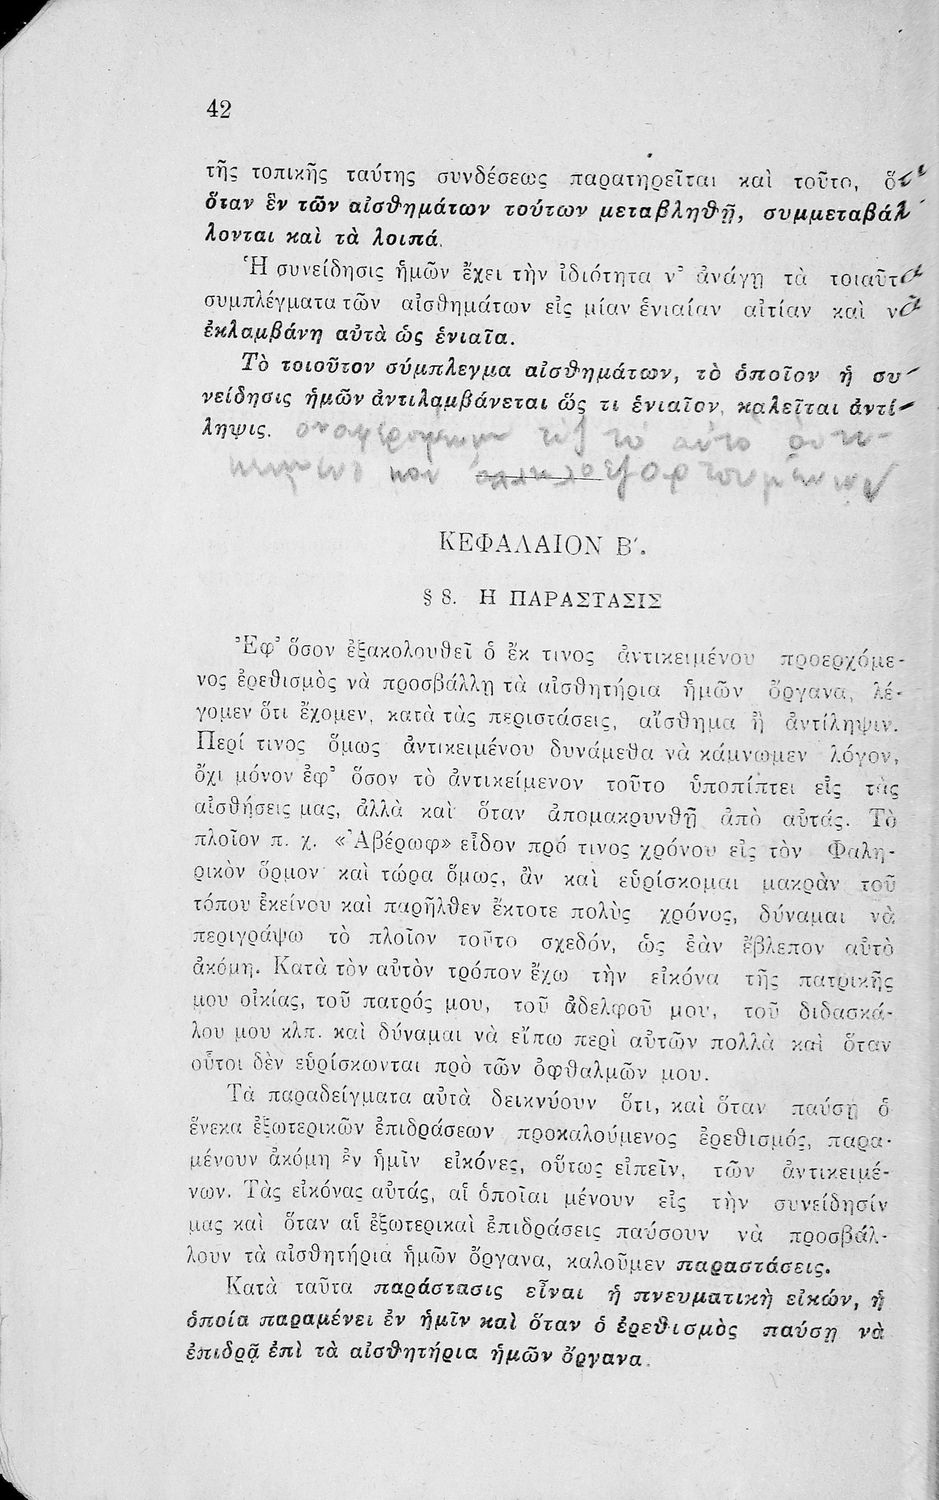 42
τῆς τοπικῆς ταύτης συνδέσεως παρατηρεῖται καὶ τοῦτο, ὅτι
ὅταν ἓν τῶν αἰσθημάτων τούτων μεταβληθῇ, συμμεταβάλ
λονται καὶ τὰ λοιπά.
Ἡ συνείδησις ἡμῶν ἔχει τὴν ἰδιότητα ν' ἀνάγῃ τὰ τοιαῦτα
συμπλέγματα τῶν αἰσθημάτων εἰς μίαν ἑνιαίαν αἰτίαν καὶ νὰ
ἐκλαμβάνῃ αὐτὰ ὡς ἑνιαῖα.
Τὸ τοιοῦτον σύμπλεγμα αἰσθημάτων, τὸ ὁποῖον ἡ συ-
νείδησις ἡμῶν ἀντιλαμβάνεται ὥς τι ἑνιαῖον, καλεῖται ἀντί-
ληψις. τὸ αὐτὸ
καὶ
ΚΕΦΑΛΑΙΟΝ Β΄.
§ 8. Η ΠΑΡΑΣΤΑΣΙΣ
Ἐφ' ὅσον ἐξακολουθεῖ ὁ ἔκ τινος ἀντικειμένου προερχόμε-
νος ἐρεθισμὸς νὰ προσβάλλῃ τὰ αἰσθητήρια ἡμῶν ὄργανα, λέ-
γομεν ὅτι ἔχομεν, κατὰ τὰς περιστάσεις, αἴσθημα ἢ ἀντίληψιν.
Περί τινος ὅμως ἀντικειμένου δυνάμεθα νὰ κάμνωμεν λόγον,
ὄχι μόνον ἐφ' ὅσον τὸ ἀντικείμενον τοῦτο ὑποπίπτει εἰς τὰς
αἰσθήσεις μας, ἀλλὰ καὶ ὅταν ἀπομακρυνθῇ ἀπὸ αὐτάς. Τὸ
πλοῖον π. χ. «Ἀβέρωφ» εἶδον πρό τινος χρόνου εἰς τὸν Φαλη-
ρικὸν ὅρμον καὶ τώρα ὅμως, ἂν καὶ εὑρίσκομαι μακρὰν τοῦ
τόπου ἐκείνου καὶ παρῆλθεν ἔκτοτε πολὺς χρόνος, δύναμαι νὰ
περιγράψω τὸ πλοῖον τοῦτο σχεδόν, ὡς ἐὰν ἔβλεπον αὐτὸ
ἀκόμη. Κατὰ τὸν αὐτὸν τρόπον ἔχω τὴν εἰκόνα τῆς πατρικῆς
μου οἰκίας, τοῦ πατρός μου, τοῦ ἀδελφοῦ μου, τοῦ διδασκά-
λου μου κλπ. καὶ δύναμαι νὰ εἴπω περὶ αὐτῶν πολλὰ καὶ ὅταν
οὗτοι δὲν εὑρίσκωνται πρὸ τῶν ὀφθαλμῶν μου.
Τὰ παραδείγματα αὐτὰ δεικνύουν ὅτι, καὶ ὅταν παύσῃ ὁ
ἕνεκα ἐξωτερικῶν ἐπιδράσεων προκαλούμενος ἐρεθισμός, παρα-
μένουν ἀκόμη ἐν ἡμῖν εἰκόνες, οὕτως εἰπεῖν, τῶν ἀντικειμέ-
νων. Τὰς εἰκόνας αὐτάς, αἱ ὁποῖαι μένουν εἰς τὴν συνείδησίν
μας καὶ ὅταν αἱ ἐξωτερικαὶ ἐπιδράσεις παύσουν νὰ προσβάλ-
λουν τὰ αἰσθητήρια ἡμῶν ὄργανα, καλοῦμεν παραστάσεις.
Κατὰ ταῦτα παράστασις εἶναι ἡ πνευματικὴ εἰκών, ἡ
ὁποία παραμένει ἐν ἡμῖν καὶ ὅταν ὁ ἐρεθισμὸς παύσῃ νὰ
ἐπιδρᾷ ἐπὶ τὰ αἰσθητήρια ἡμῶν ὄργανα.